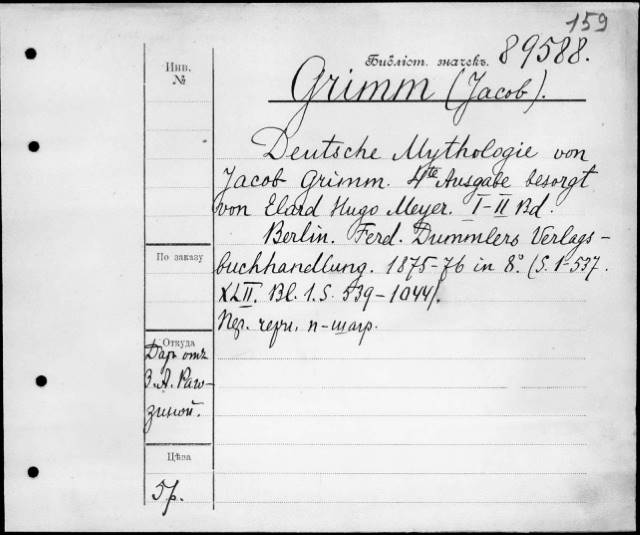 159
Бібліот. значекъ. 89588.
Инв.
№
Grimm (Jacob).
Deutsche Mythologie von
Jacob Grimm. 4te Ausgabe besorgt
von Elard Hugo Meyer. I-II Bd.
Berlin. Ferd. Dummlers Verlags-
buchhandlung. 1875-76 in 8° (S. 1-537.
XLII. Bl. 1. S. 539-1044).
По заказу
Откуда
Даръ отъ
З. А. Раго-
зиной.
Цѣна
5р.